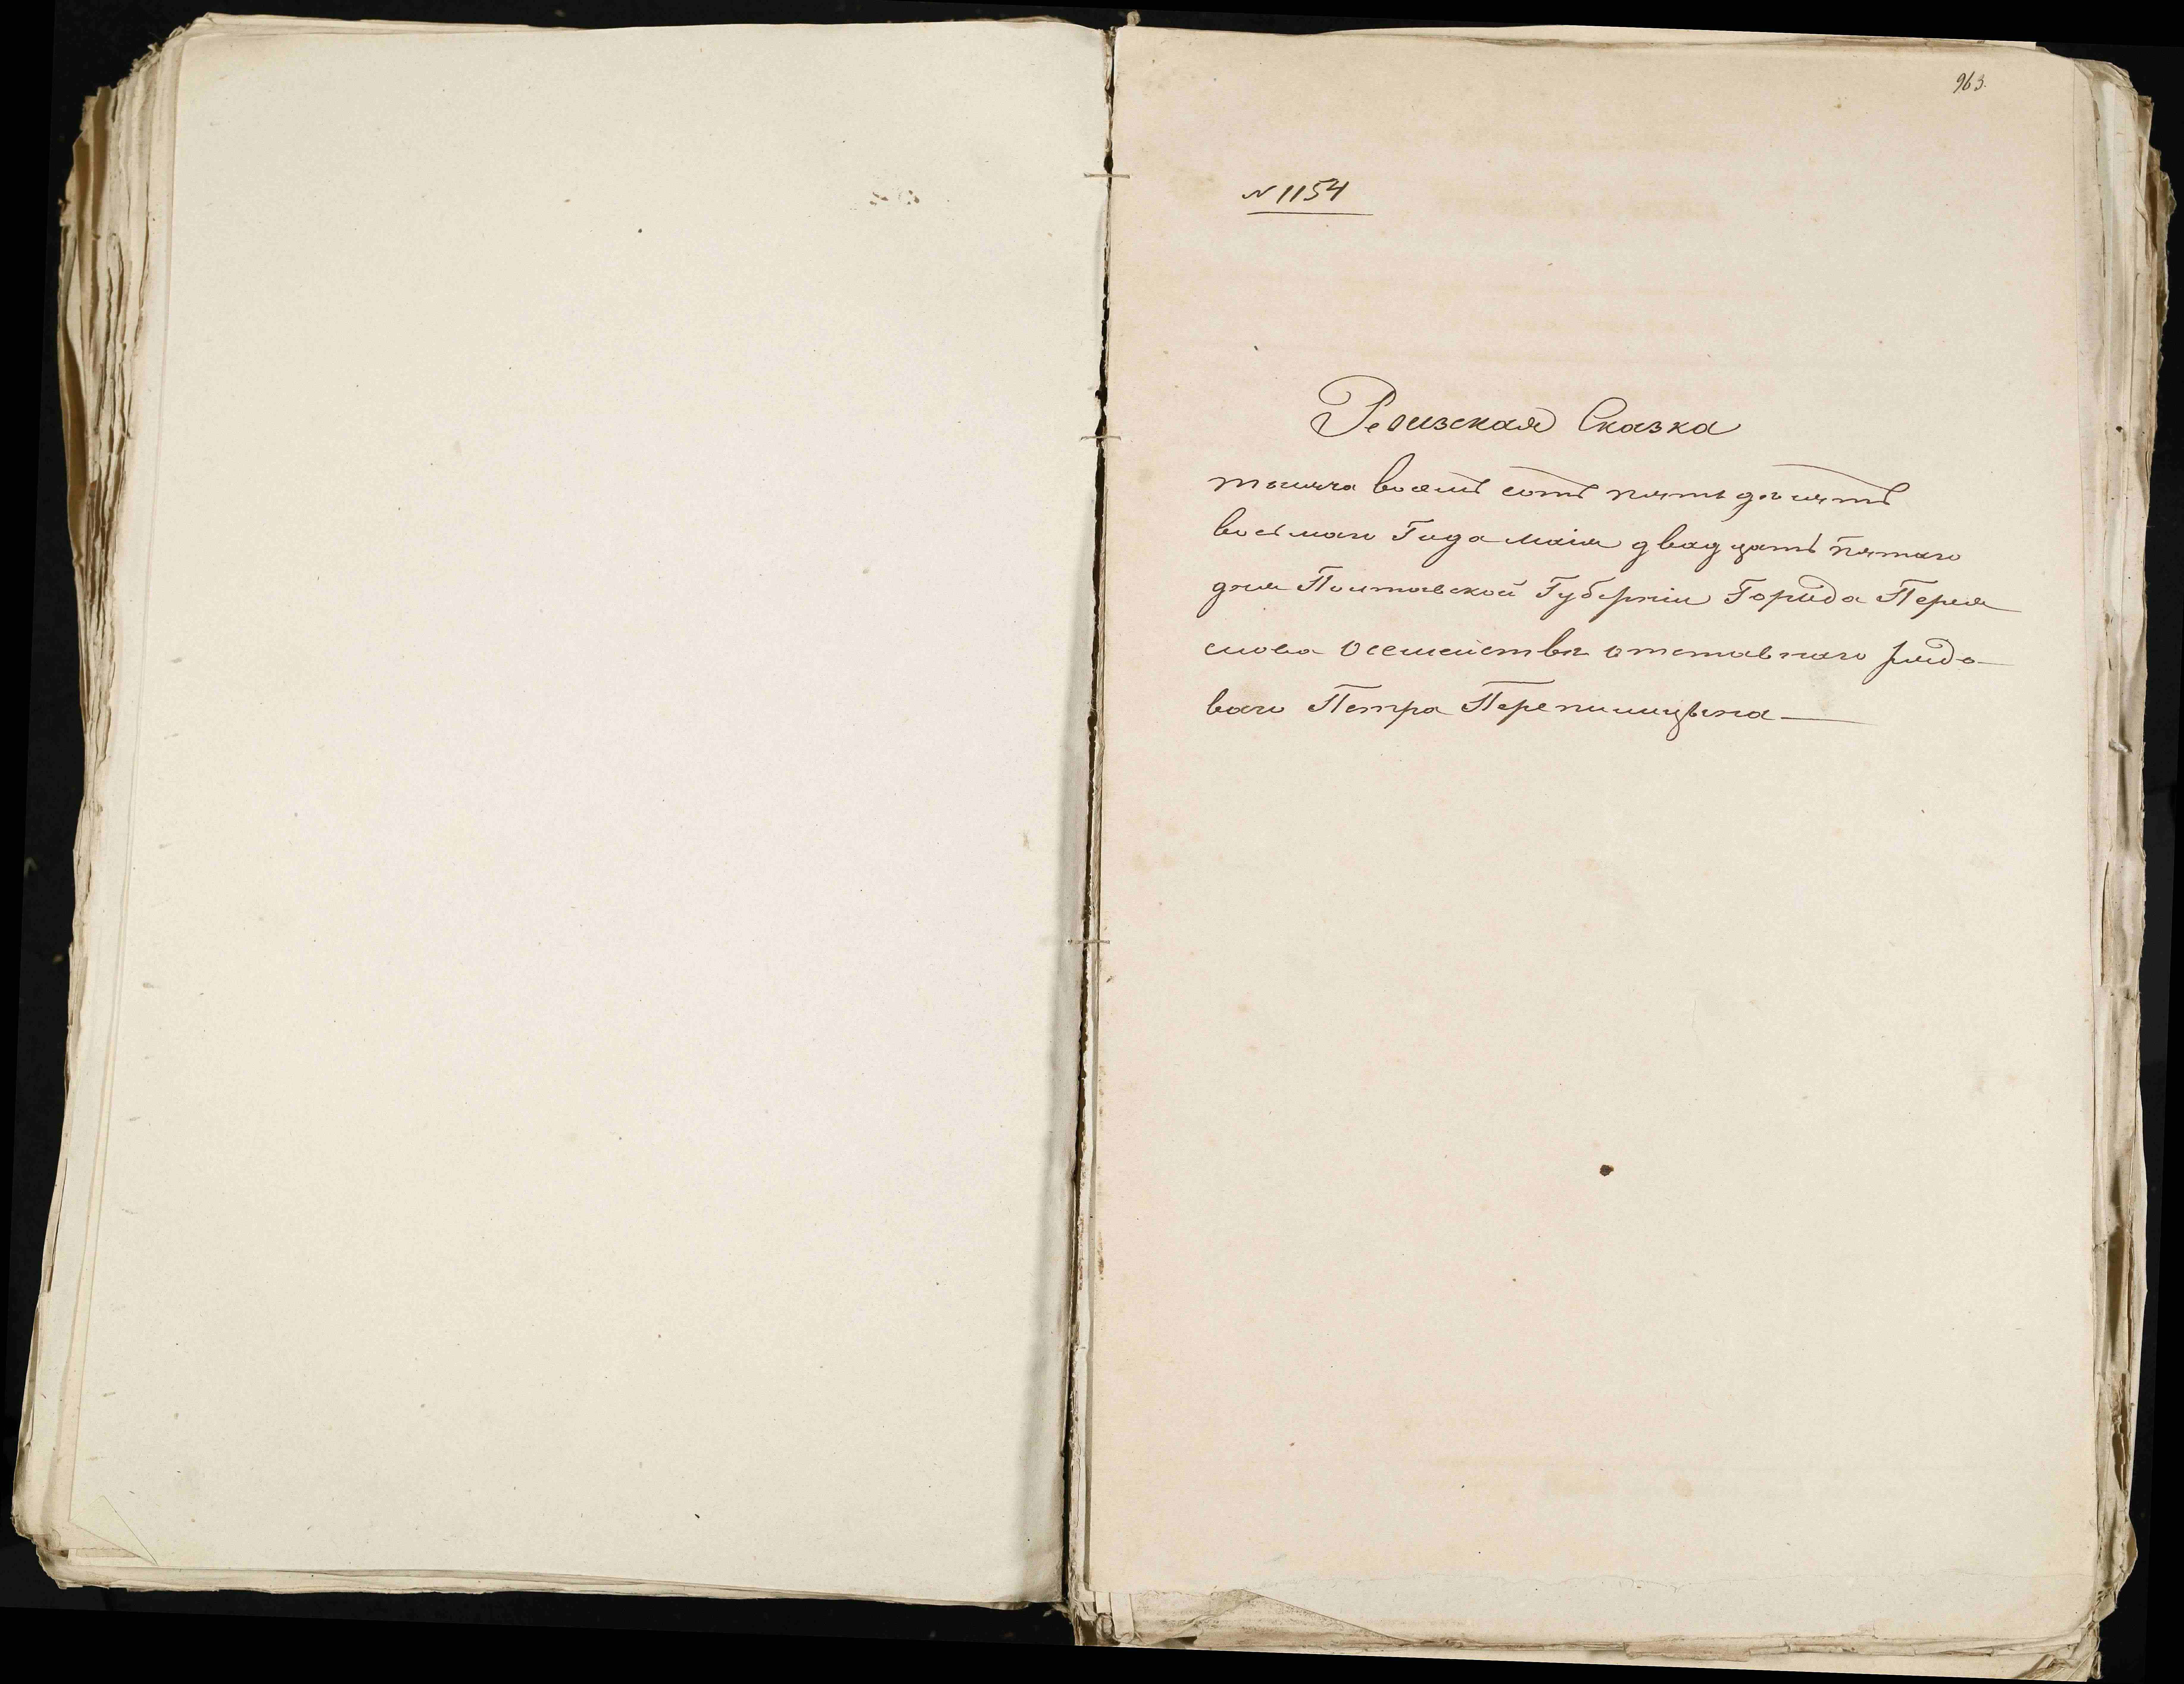 963.
№ 1154
Ревизская Сказка
тысяча восемь сотъ пятьдесятъ
восьмаго Года маія двадцать пятаго
дня Полтавской Губерніи Города Перея
слова о семействѣ отставнаго рядо-
ваго Петра Перепилицына